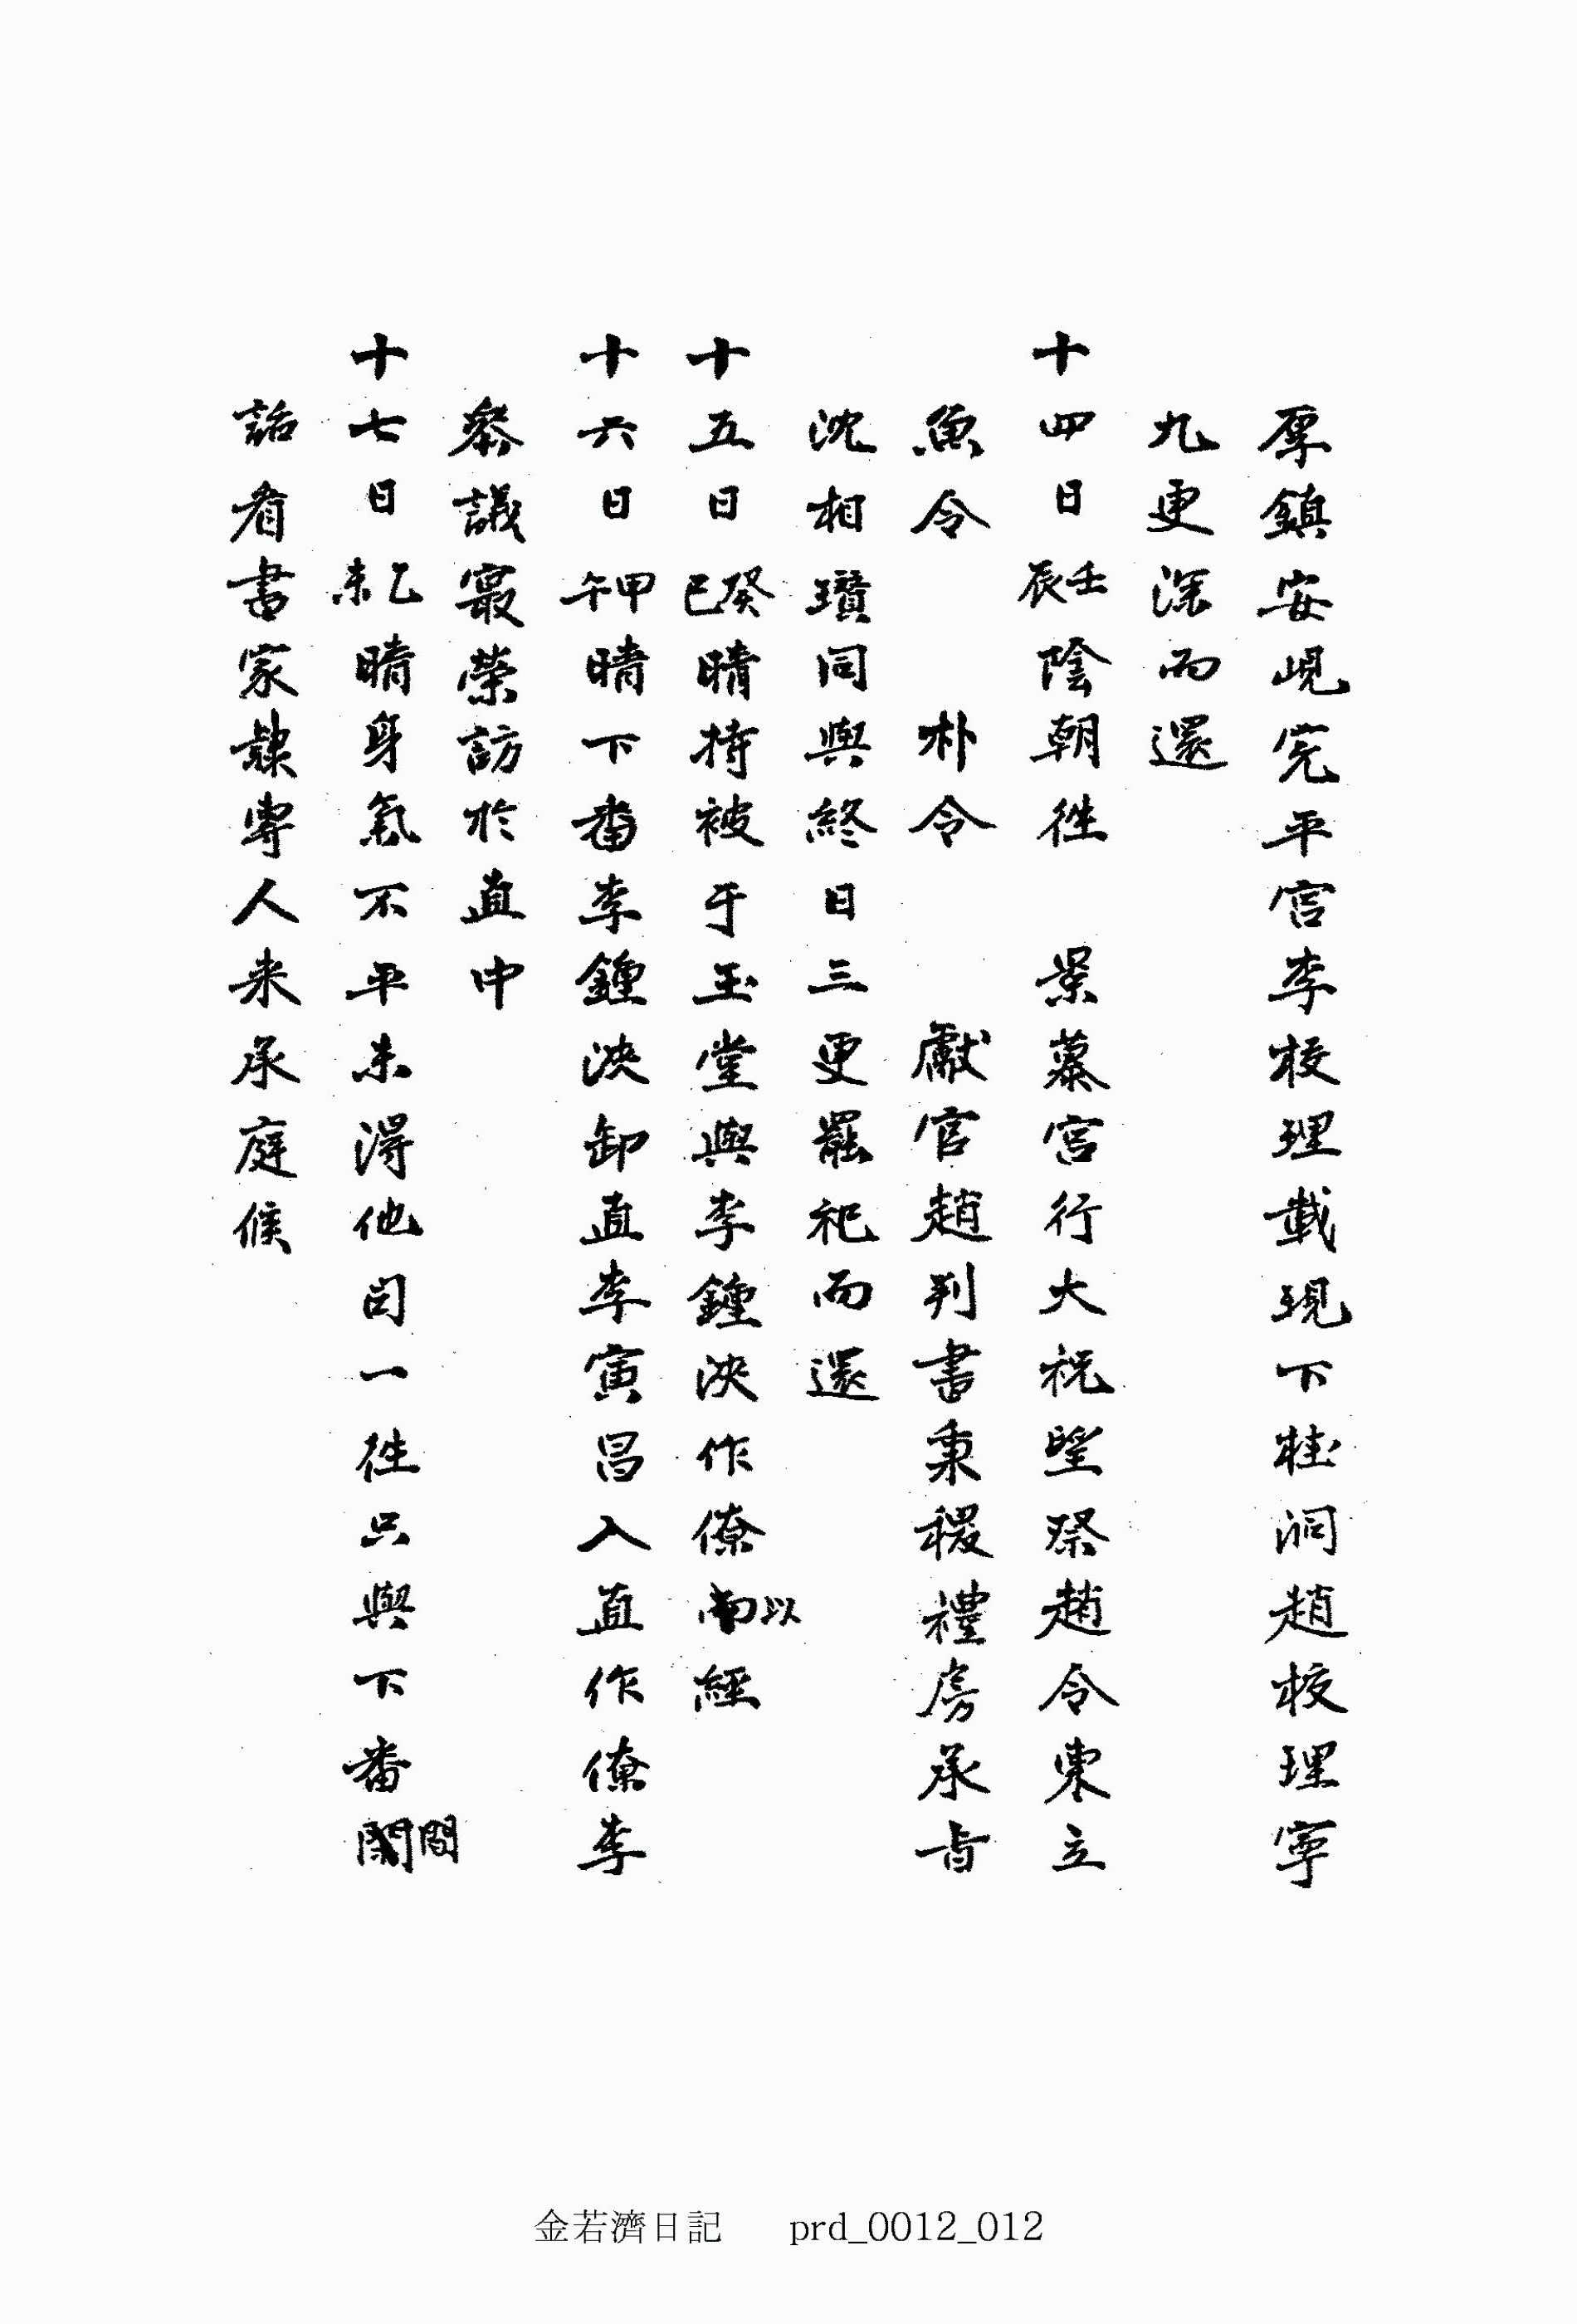 厚鎭安峴完平宮李校理載現下桂洞趙校理寧
九更深而還
十四日壬辰陰朝徃 景慕宮行大祝望祭趙令東立
魚令 朴令 獻官趙判書秉稷禮房承旨
沈相瓚同與終日三更罷祀而還
十五日癸巳晴持被于玉堂與李鍾浹作僚以經
十六日甲午晴下番李鍾浹卸直李寅昌入直作僚李
叅議㝡榮訪於直中
十七日乙未晴身氣不平未得他因一徃只與下番閤
話看書家隷専人来承庭候
金若濟日記 prd_0012_012